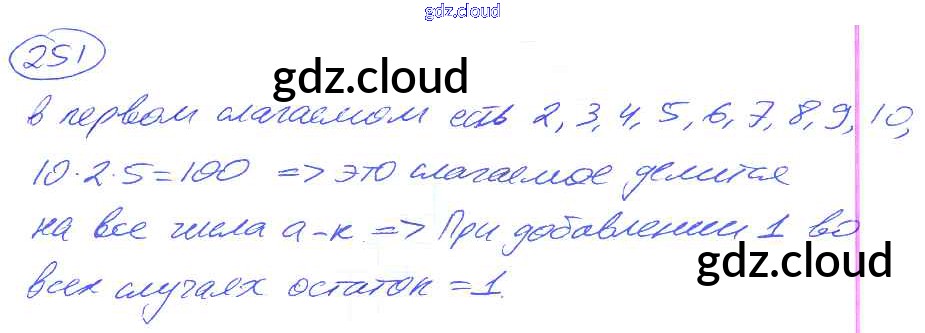 gdz.cloud
251
gdz.cloud
в первом слагаемом есть 2, 3, 4, 5, 6, 7, 8, 9, 10,
10·2·5=100 => это слагаемое делится
на все числа а-к => При добавлении 1 во
gdz.cloud
всех случаях остаток =1.